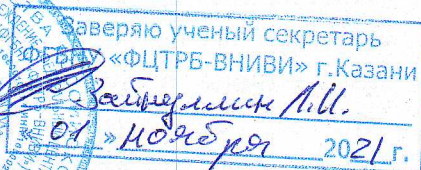 Заверяю ученый секретарь
ФГБНУ «ФЦТРБ-ВНИВИ» г.Казани
Зайнуллин Л.И.
«01» ноября 2021 г.